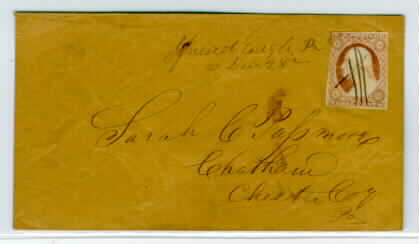 Pa
28
Sarah C Passmore
Chatham
Chester Coy
Pa